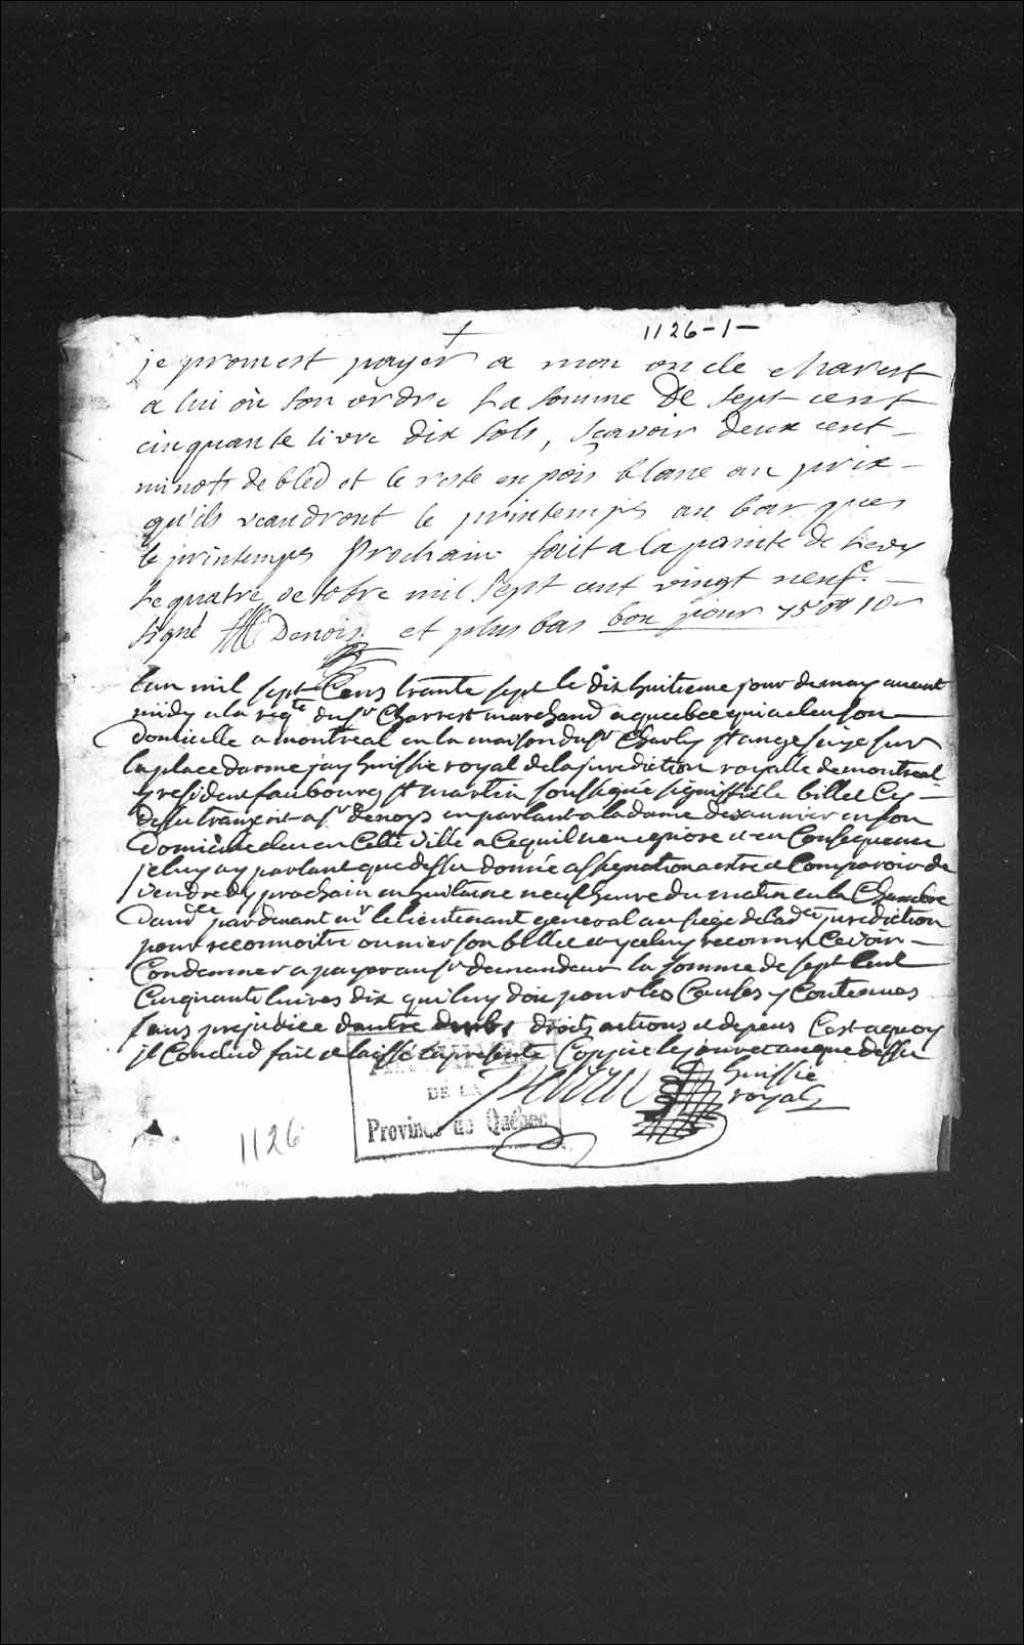 1126-1-
je promest payer a mon oncle charest
a lui où son ordre La somme De sept cent
cinquante livre dix sols, sçavoir deux cent
minots de bled et le reste en pois blanc au prix
qu'ils veaudront le printemps au barques
le printemps Prochain fait a la pointe de Levy
Le quatre octobre mil sept cent vingt neuf.
signé Denois et plus bas bon pour 750tt 10s
Lan mil sept Cens trante sept le dix huitieme jour de may auent
midy a la reqte du sr Charrest marchand a quebec qui a eleu son
domicille a montreal en la maison du sr Charly st ange size sur
la place darme jay huissie royal de la juridiction royalle de montreal
y resident faubourg st martin soussigne signiffié le billet Cy
dessu transcrit a sr denoys en parlant a la dame en son
domicille eleu en Cette ville a Ce quil nen ignore et en Consequence
je luy ay parlant que dessu donné assignation a estre et Comparoir de
vendredy prochain en huitaine neuf heure du matin en la Chambre
daudce pardeuant mr le lieutenant general au siege de ladte jurediction
pour reconnoitre ou nier son billet et yceluy reconnu se voir
Condemner a payer au sr demandeur la somme de sept Cent
Cinquante livres dix quil luy doit pour les Causes y Contenues
sans prejudice dautre droits actions et depens Cest a quoy
jl Conclud fait et laissé la presente Coppie le jour et an que dessu
huissie
royal
DE LA
Province de Québec
1126